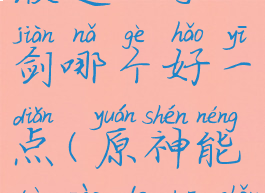 jiàn nǎ gè hǎo yī
剑哪个好一
diǎn yuán shén néng
点(原神能